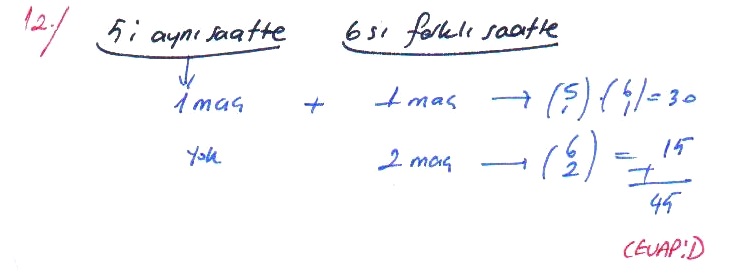 12-) 5 i aynı saatte 6 sı farklı saatte
1 maç + 1 maç → (5 1) · (6 1) = 30
Yok 2 maç → (6 2) = 15
+
45
CEVAP: D